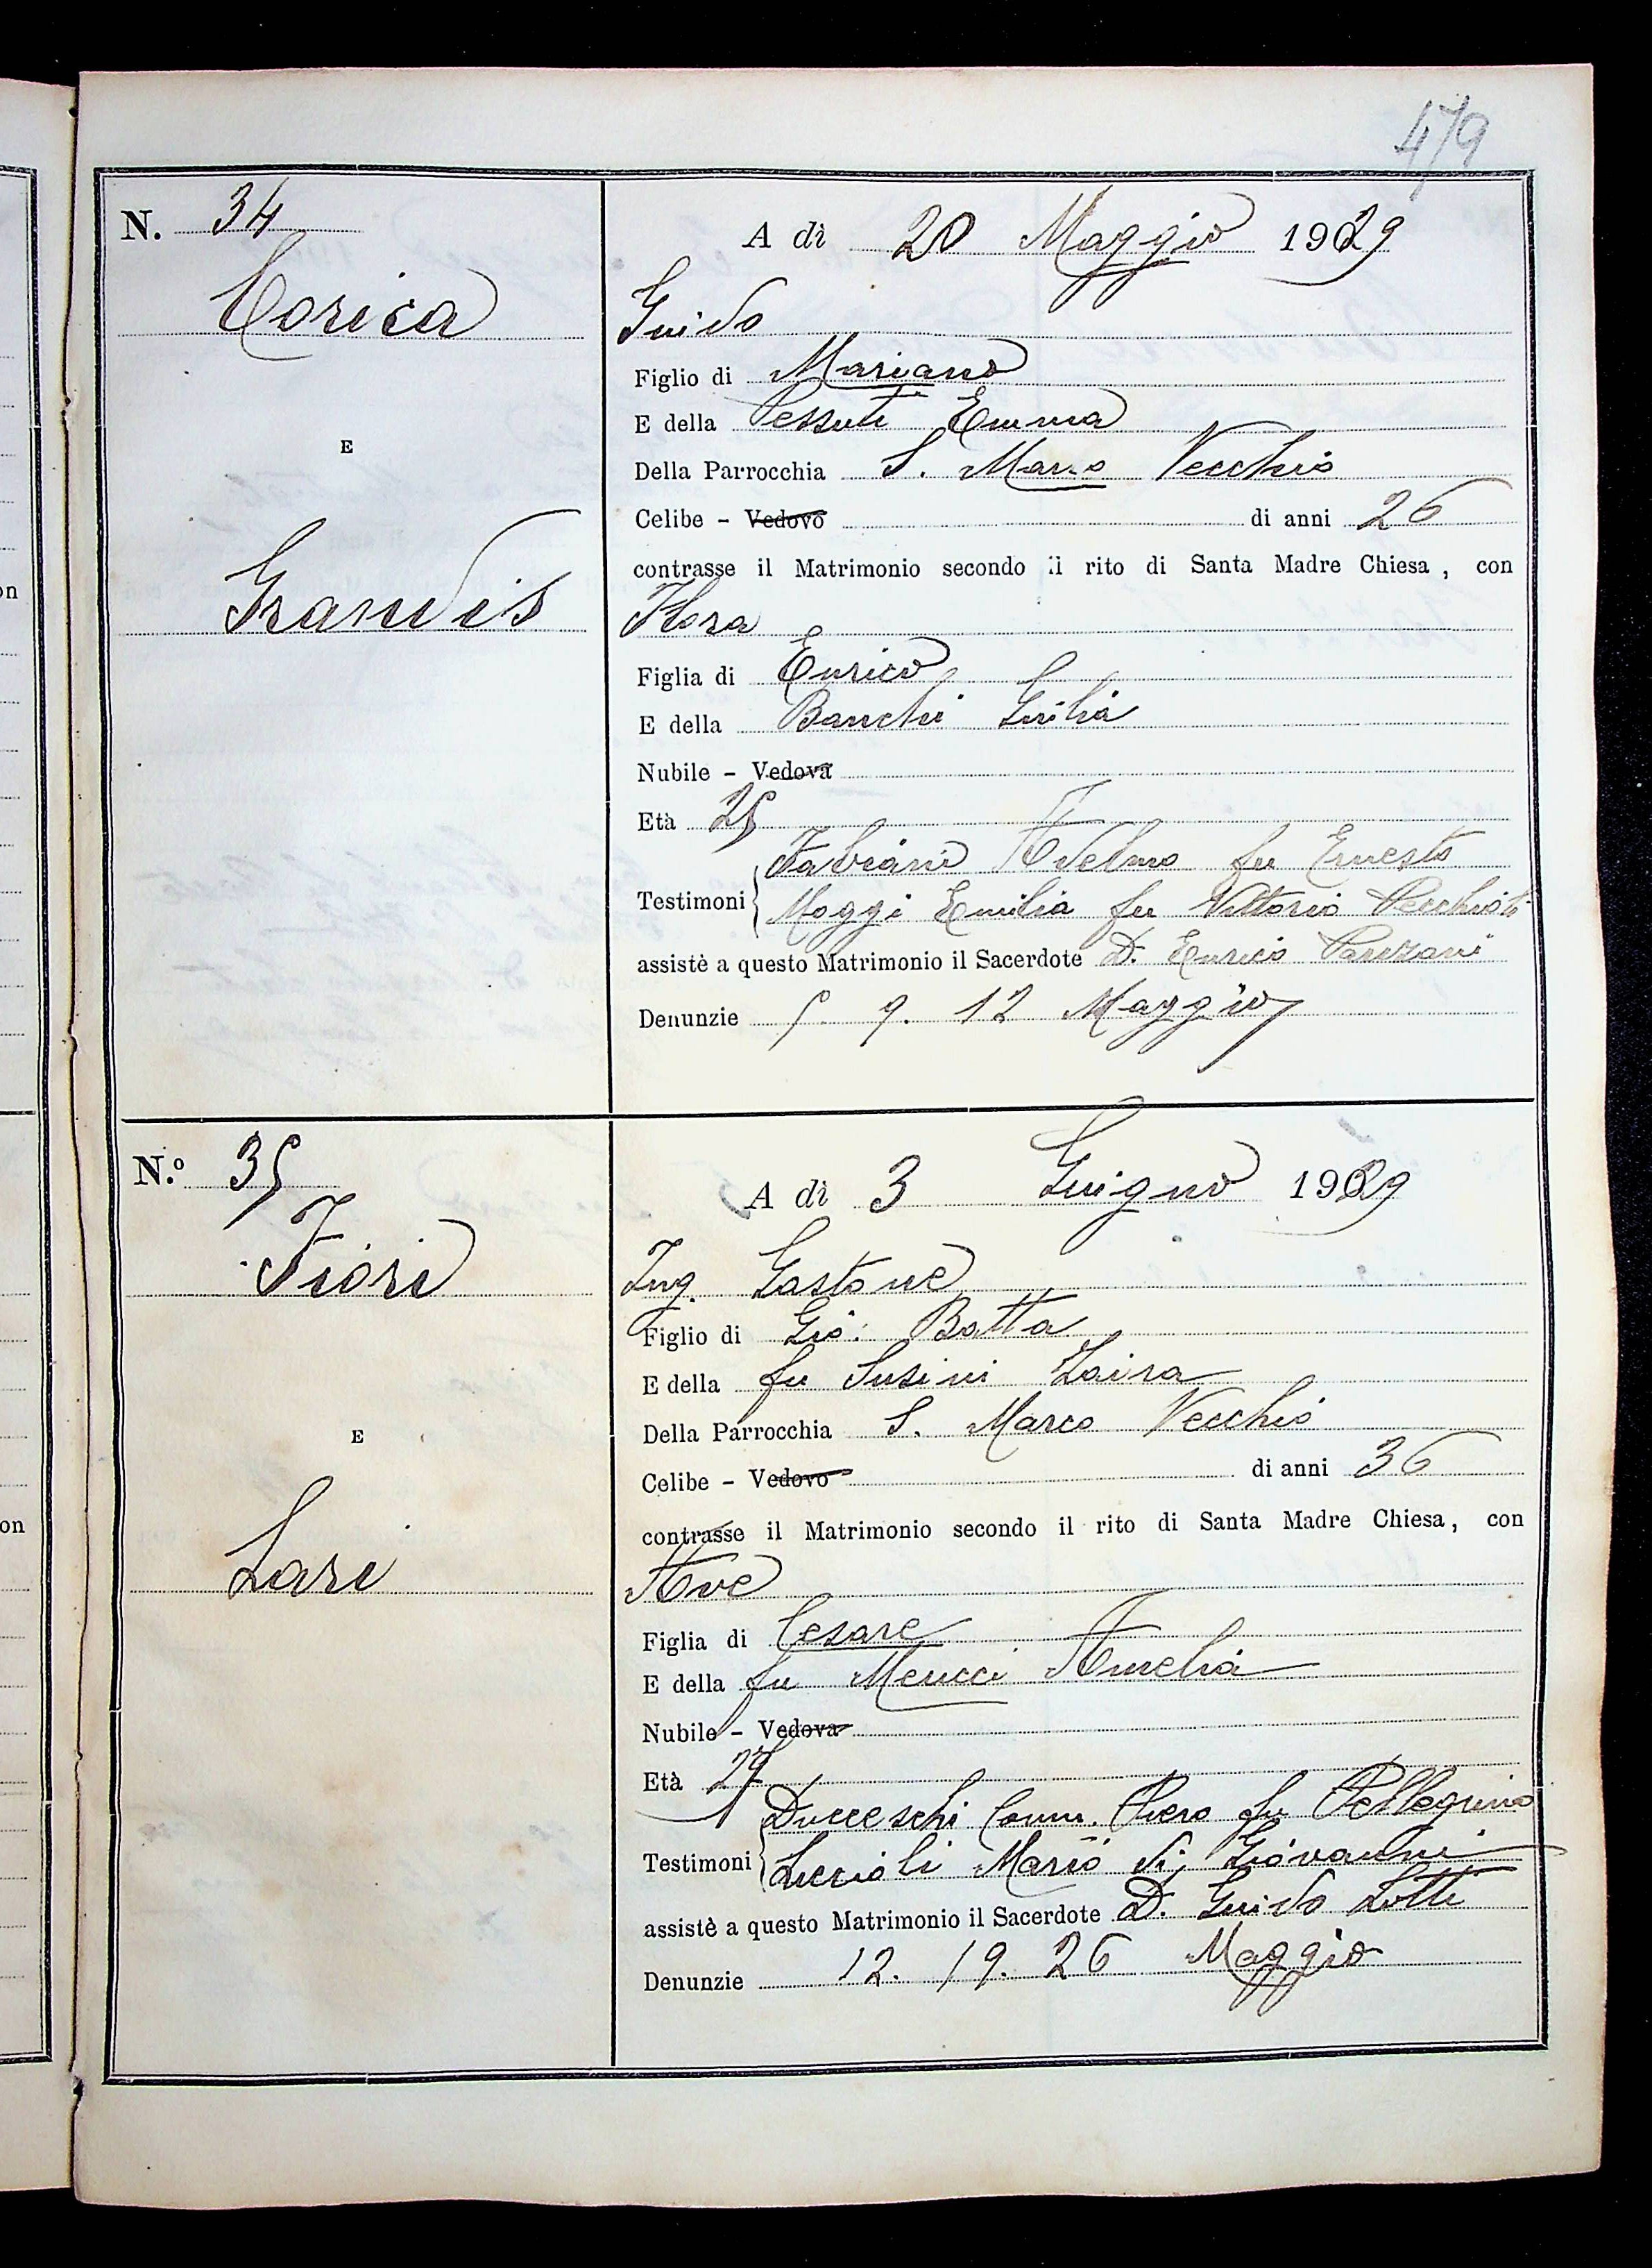 479
N. 34
A dì 20 Maggio 1929
Corica
Guido
Figlio di Mariano
E della Pessuti Emma
E
Della Parrocchia S. Marco Vecchio
Celibe - Vedovo di anni 26
contrasse il Matrimonio secondo il rito di Santa Madre Chiesa, con
Grandis
Flora
Figlia di Enrico
E della Banchi Giulia
Nubile - Vedova
Età 25
Fabiani Adelmo fu Ernesto
Testimoni Moggi Emilia fu Vittorio
assistè a questo Matrimonio il Sacerdote D. Enrico
Denunzie 5 9. 12 Maggio
N.º 35
A dì 3 Giugno 1929
Fiori
Ing. Gastone
Figlio di Gio: Batta
E della fu Susini Zaira
E
Della Parrocchia S. Marco Vecchio
Celibe - Vedovo di anni 36
contrasse il Matrimonio secondo il rito di Santa Madre Chiesa, con
Lari
Ave
Figlia di Cesare
E della fu Meucci Amelia
Nubile - Vedova
Età 27
Ducceschi Comm. Piero fu Pellegrino
Testimoni Luccioli Mario di Giovanni
assistè a questo Matrimonio il Sacerdote D. Guido Lotti
Denunzie 12. 19. 26 Maggio
on
on